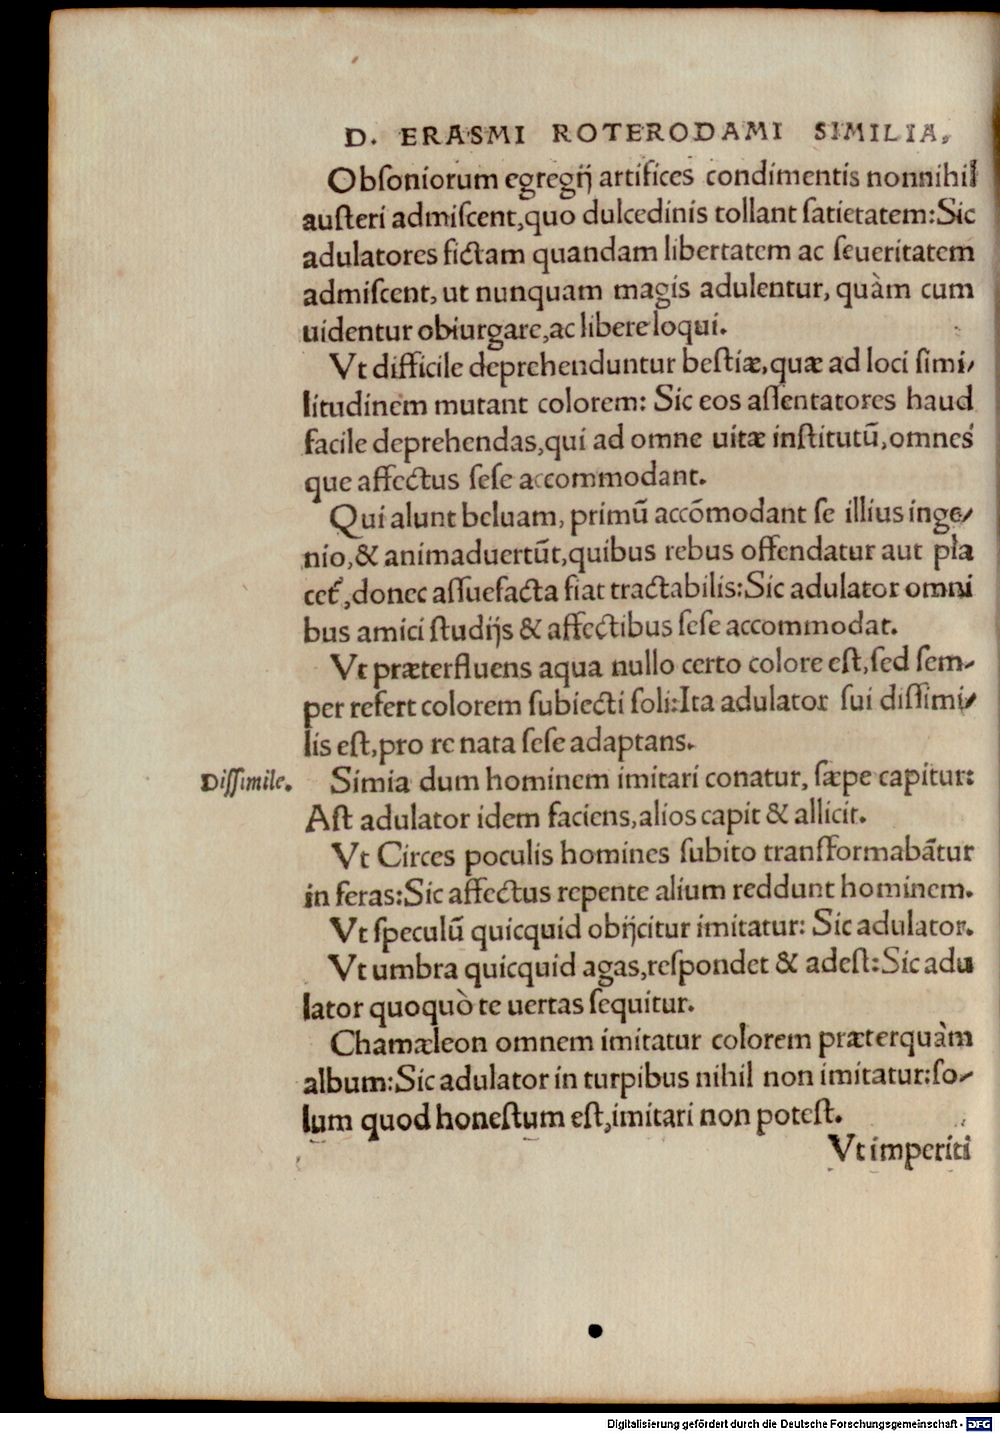 D. ERASMI ROTERODAMI SIMILIA.
Obſoniorum egregĳ artifices condimentis nonnihil
auſteri admiſcent,quo dulcedinis tollant ſatietatem:Sic
adulatores fictam quandam libertatem ac ſeueritatem
admiſcent, ut nunquam magis adulentur, quàm cum
uidentur obiurgare,ac libere loqui.
Vt difficile deprehenduntur beſtiæ,quæ ad loci simi/
litudinem mutant colorem: Sic eos aſſentatores haud
facile deprehendas,qui ad omne uitæ inſtitutũ,omnes
que affectus ſeſe accommodant.
Qui alunt beluam, primũ accõmodant ſe illius inge/
nio,& animaduertũt,quibus rebus offendatur aut pla
cet́,donec aſſuefacta fiat tractabilis:Sic adulator omni
bus amici ſtudĳs & affectibus ſeſe accommodat.
Vt præterfluens aqua nullo certo colore eſt,ſed ſem/
per refert colorem ſubiecti ſoli:Ita adulator ſui diſſimi/
lis eſt,pro re nata ſeſe adaptans.
Diſſimile. Simia dum hominem imitari conatur, ſæpe capitur:
Aſt adulator idem faciens,alios capit & allicit.
Vt Circes poculis homines ſubito tranſformabãtur
in feras:Sic affectus repente alium reddunt hominem.
Vt ſpeculũ quicquid obĳcitur imitatur: Sic adulator.
Vt umbra quicquid agas,reſpondet & adeſt:Sic adu
lator quoquò te uertas ſequitur.
Chamæleon omnem imitatur colorem præterquàm
album:Sic adulator in turpibus nihil non imitatur:ſo/
lum quod honeſtum eſt,imitari non poteſt.
Vt imperiti
Digitalisierung gefördert durch die Deutsche Forschungsgemeinschaft - DFG